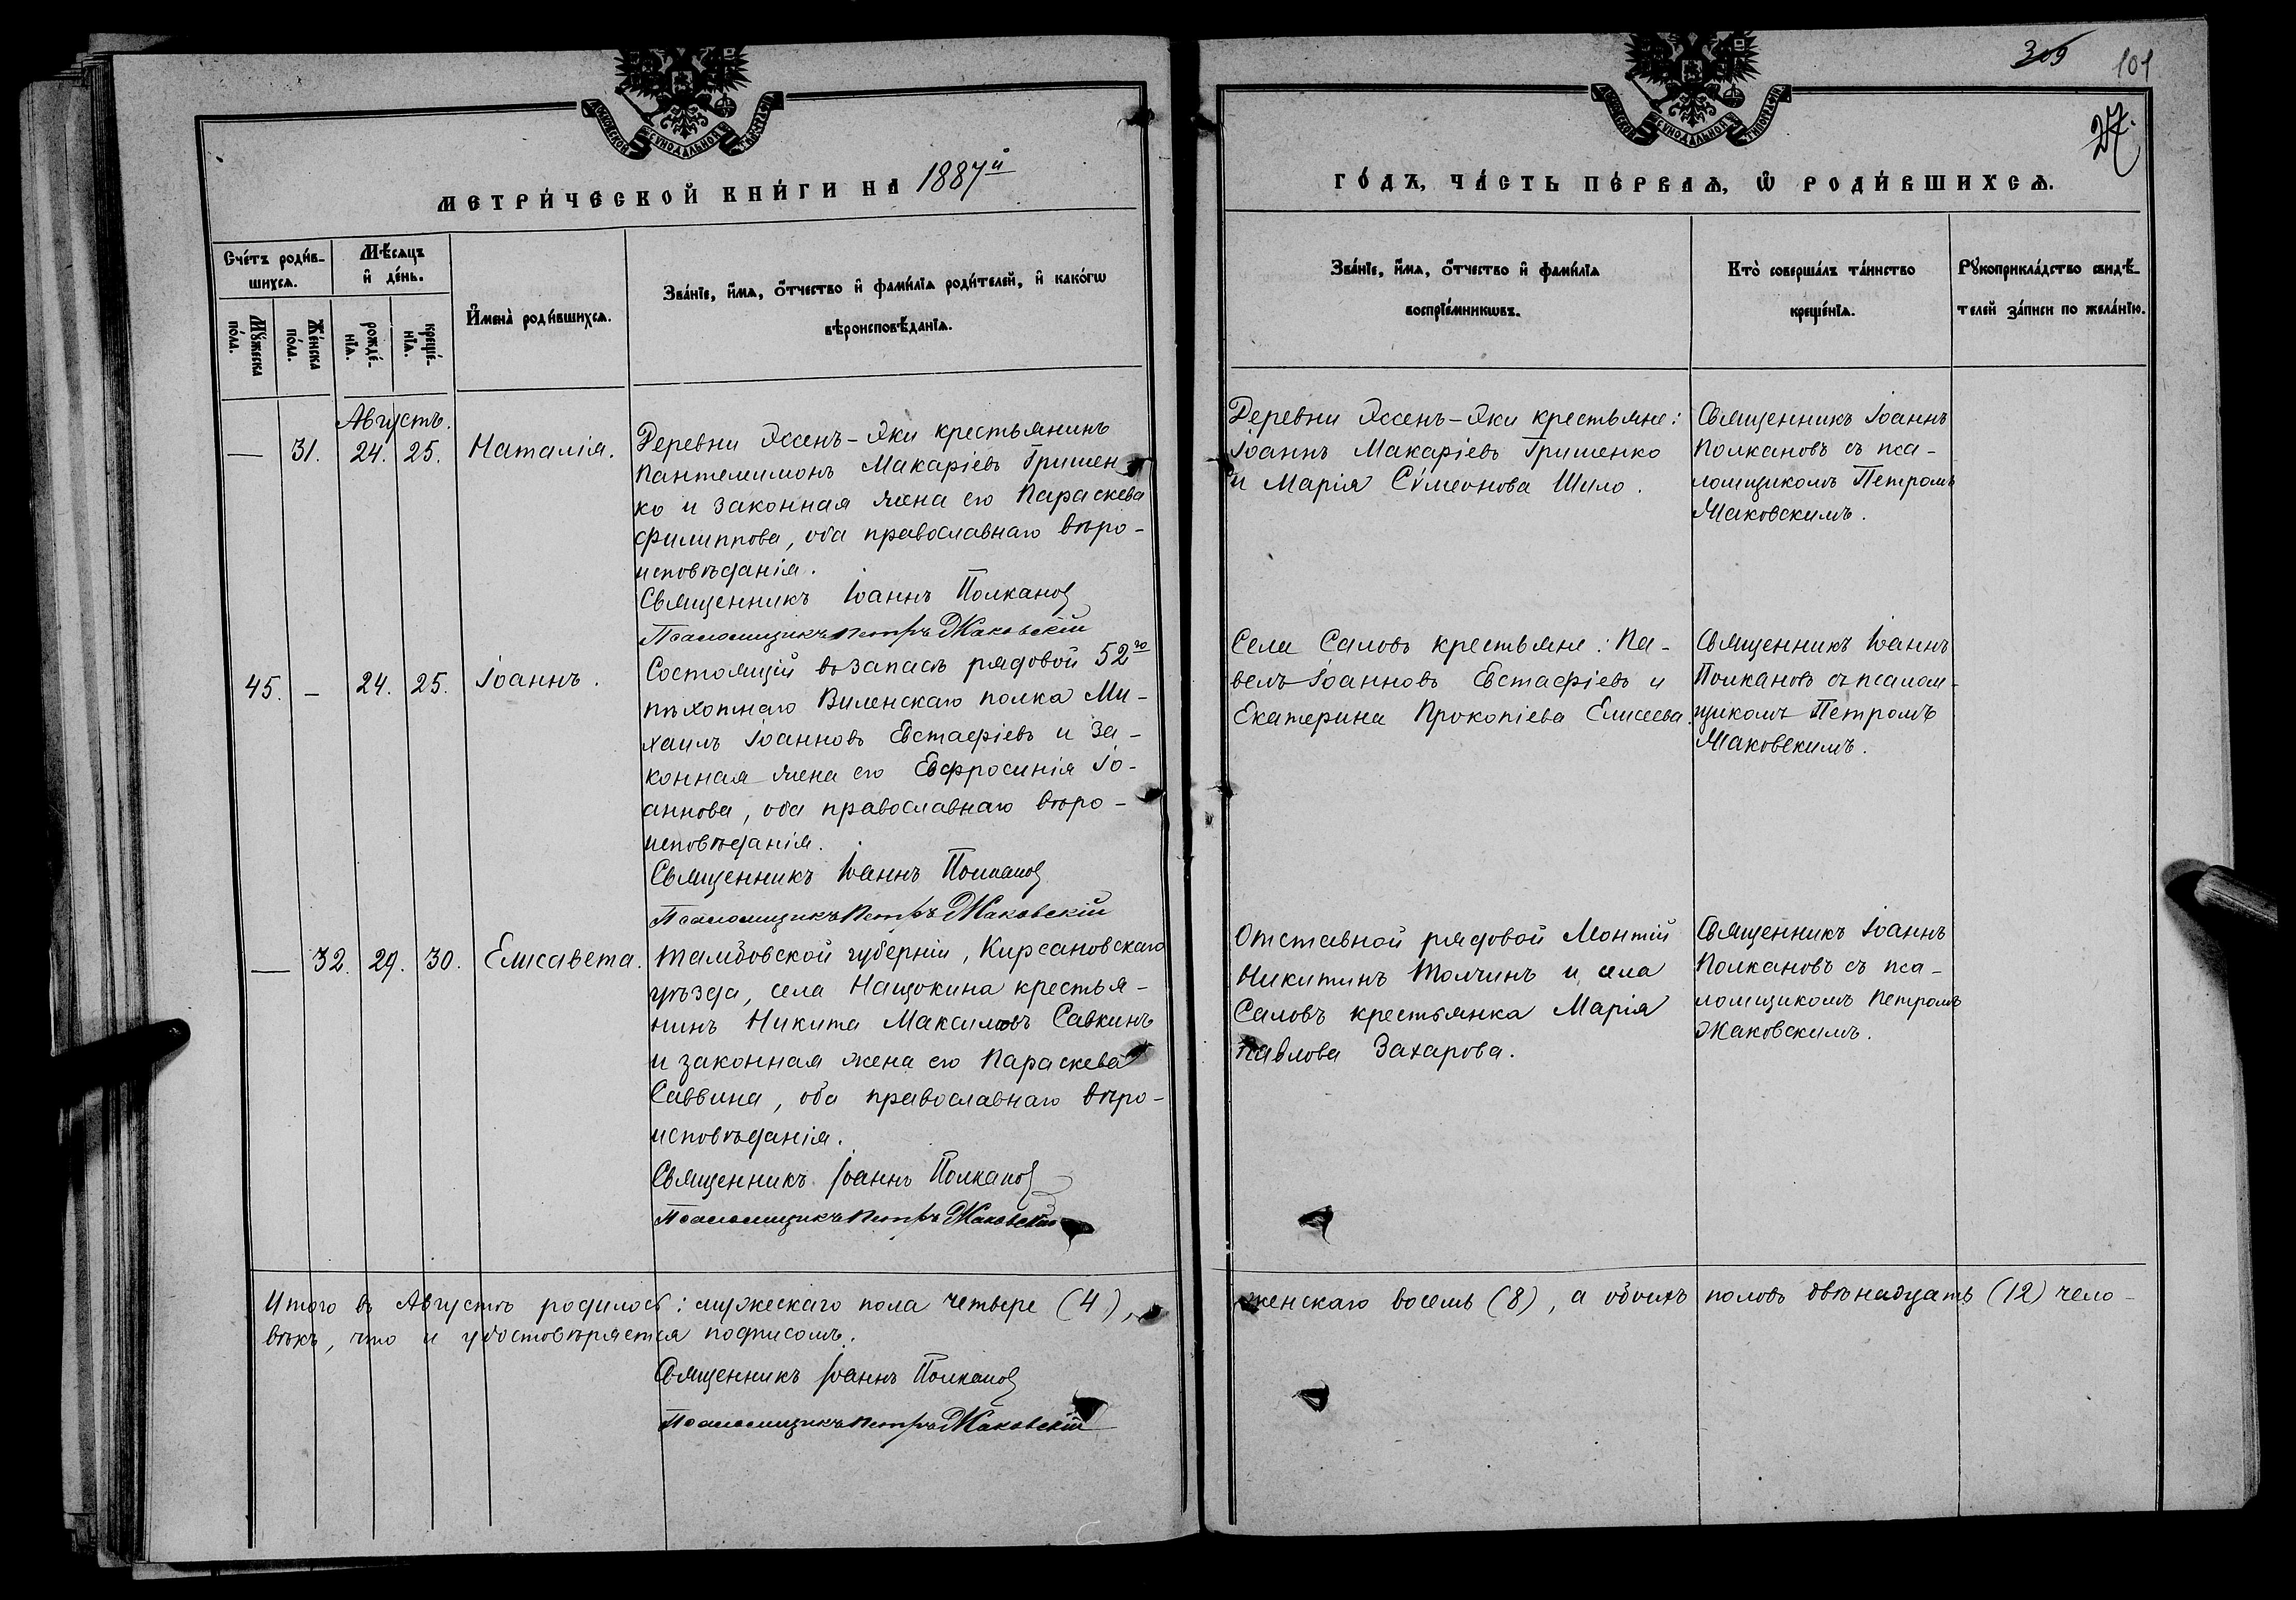 309 101
27.
МОСКОВСКОЙ СѴНОДАЛЬНОЙ ТИПОГРАФІИ
МОСКОВСКОЙ СѴНОДАЛЬНОЙ ТИПОГРАФІИ
МЕТРИ́ЧЕСКОЙ КНИ́ГИ НА 1887й
ГО́ДЪ, ЧА́СТЬ ПЕ́РВАѦ, Ѿ РОДИ́ВШИХСѦ.
Сче́тъ роди́в-
шихсѧ.
Мꙋ́жеска
по́ла.
Же́нска
по́ла.
Мѣ́сѧцъ
и҆ де́нь.
рожде́-
нїѧ.
креще́-
нїѧ.
И҆мена̀ роди́вшихсѧ.
Зва́нїе, и҆́мѧ, о҆́тчество и҆ фами́лїѧ роди́телей, и҆ како́гѡ
вѣроисповѣ́данїѧ.
Зва́нїе, и҆́мѧ, о҆́тчество и҆ фами́лїѧ
воспрїе́мникѡвъ.
Кто̀ соверша́лъ та́инство
креще́нїѧ.
Рꙋкоприкла́дство свидѣ́-
телей за́писи по жела́нїю.
Августъ.
— 31. 24. 25. Наталія.
Деревни Эссенъ-Эки крестьянинъ
Пантелимонъ Макаріевъ Гришен
ко и законная жена его Параскева
Филиппова, оба православнаго вѣро-
исповѣданія.
Священникъ Іоаннъ Полканов
Псаломщикъ Петръ Жаковскій
Деревни Эссенъ-Эки крестьяне:
Іоаннъ Макаріевъ Гришенко
и Марія Сѵмеонова Шило.
Священникъ Іоаннъ
Полкановъ съ пса-
ломщикомъ Петромъ
Жаковскимъ.
45. — 24. 25. Іоаннъ.
Состоящій въ запасѣ рядовой 52го
пѣхотнаго Виленскаго полка Ми-
хаилъ Іоанновъ Евстафіевъ и за-
конная жена его Евфросинія Іо-
аннова, оба православнаго вѣро-
исповѣданія.
Священникъ Іоаннъ Полканов
Псаломщикъ Петръ Жаковскій
Села Саловъ крестьяне: Па-
велъ Іоанновъ Евстафіевъ и
Екатерина Прокопіева Елисеева.
Священникъ Іоаннъ
Полкановъ съ псалом-
щикомъ Петромъ
Жаковскимъ.
— 32. 29. 30. Елисавета.
Тамбовской губерніи, Кирсановскаго
уѣзда, села Нащокина крестья-
нинъ Никита Максимовъ Савкинъ
и законная жена его Параскева
Саввина, оба православнаго вѣро-
исповѣданія.
Священникъ Іоаннъ Полканов
Псаломщикъ Петръ Жаковскій
Отставной рядовой Монтій
Никитинъ Толчинъ и села
Саловъ крестьянка Марія
Павлова Захарова.
Священникъ Іоаннъ
Полкановъ съ пса-
ломщикомъ Петромъ
Жаковскимъ.
Итого въ Августѣ родилось: мужескаго пола четверо (4), женскаго восемь (8), а обоихъ половъ двѣнадцать (12) чело-
вѣкъ, что и удостовѣряется подписомъ.
Священникъ Іоаннъ Полканов
Псаломщикъ Петръ Жаковскій